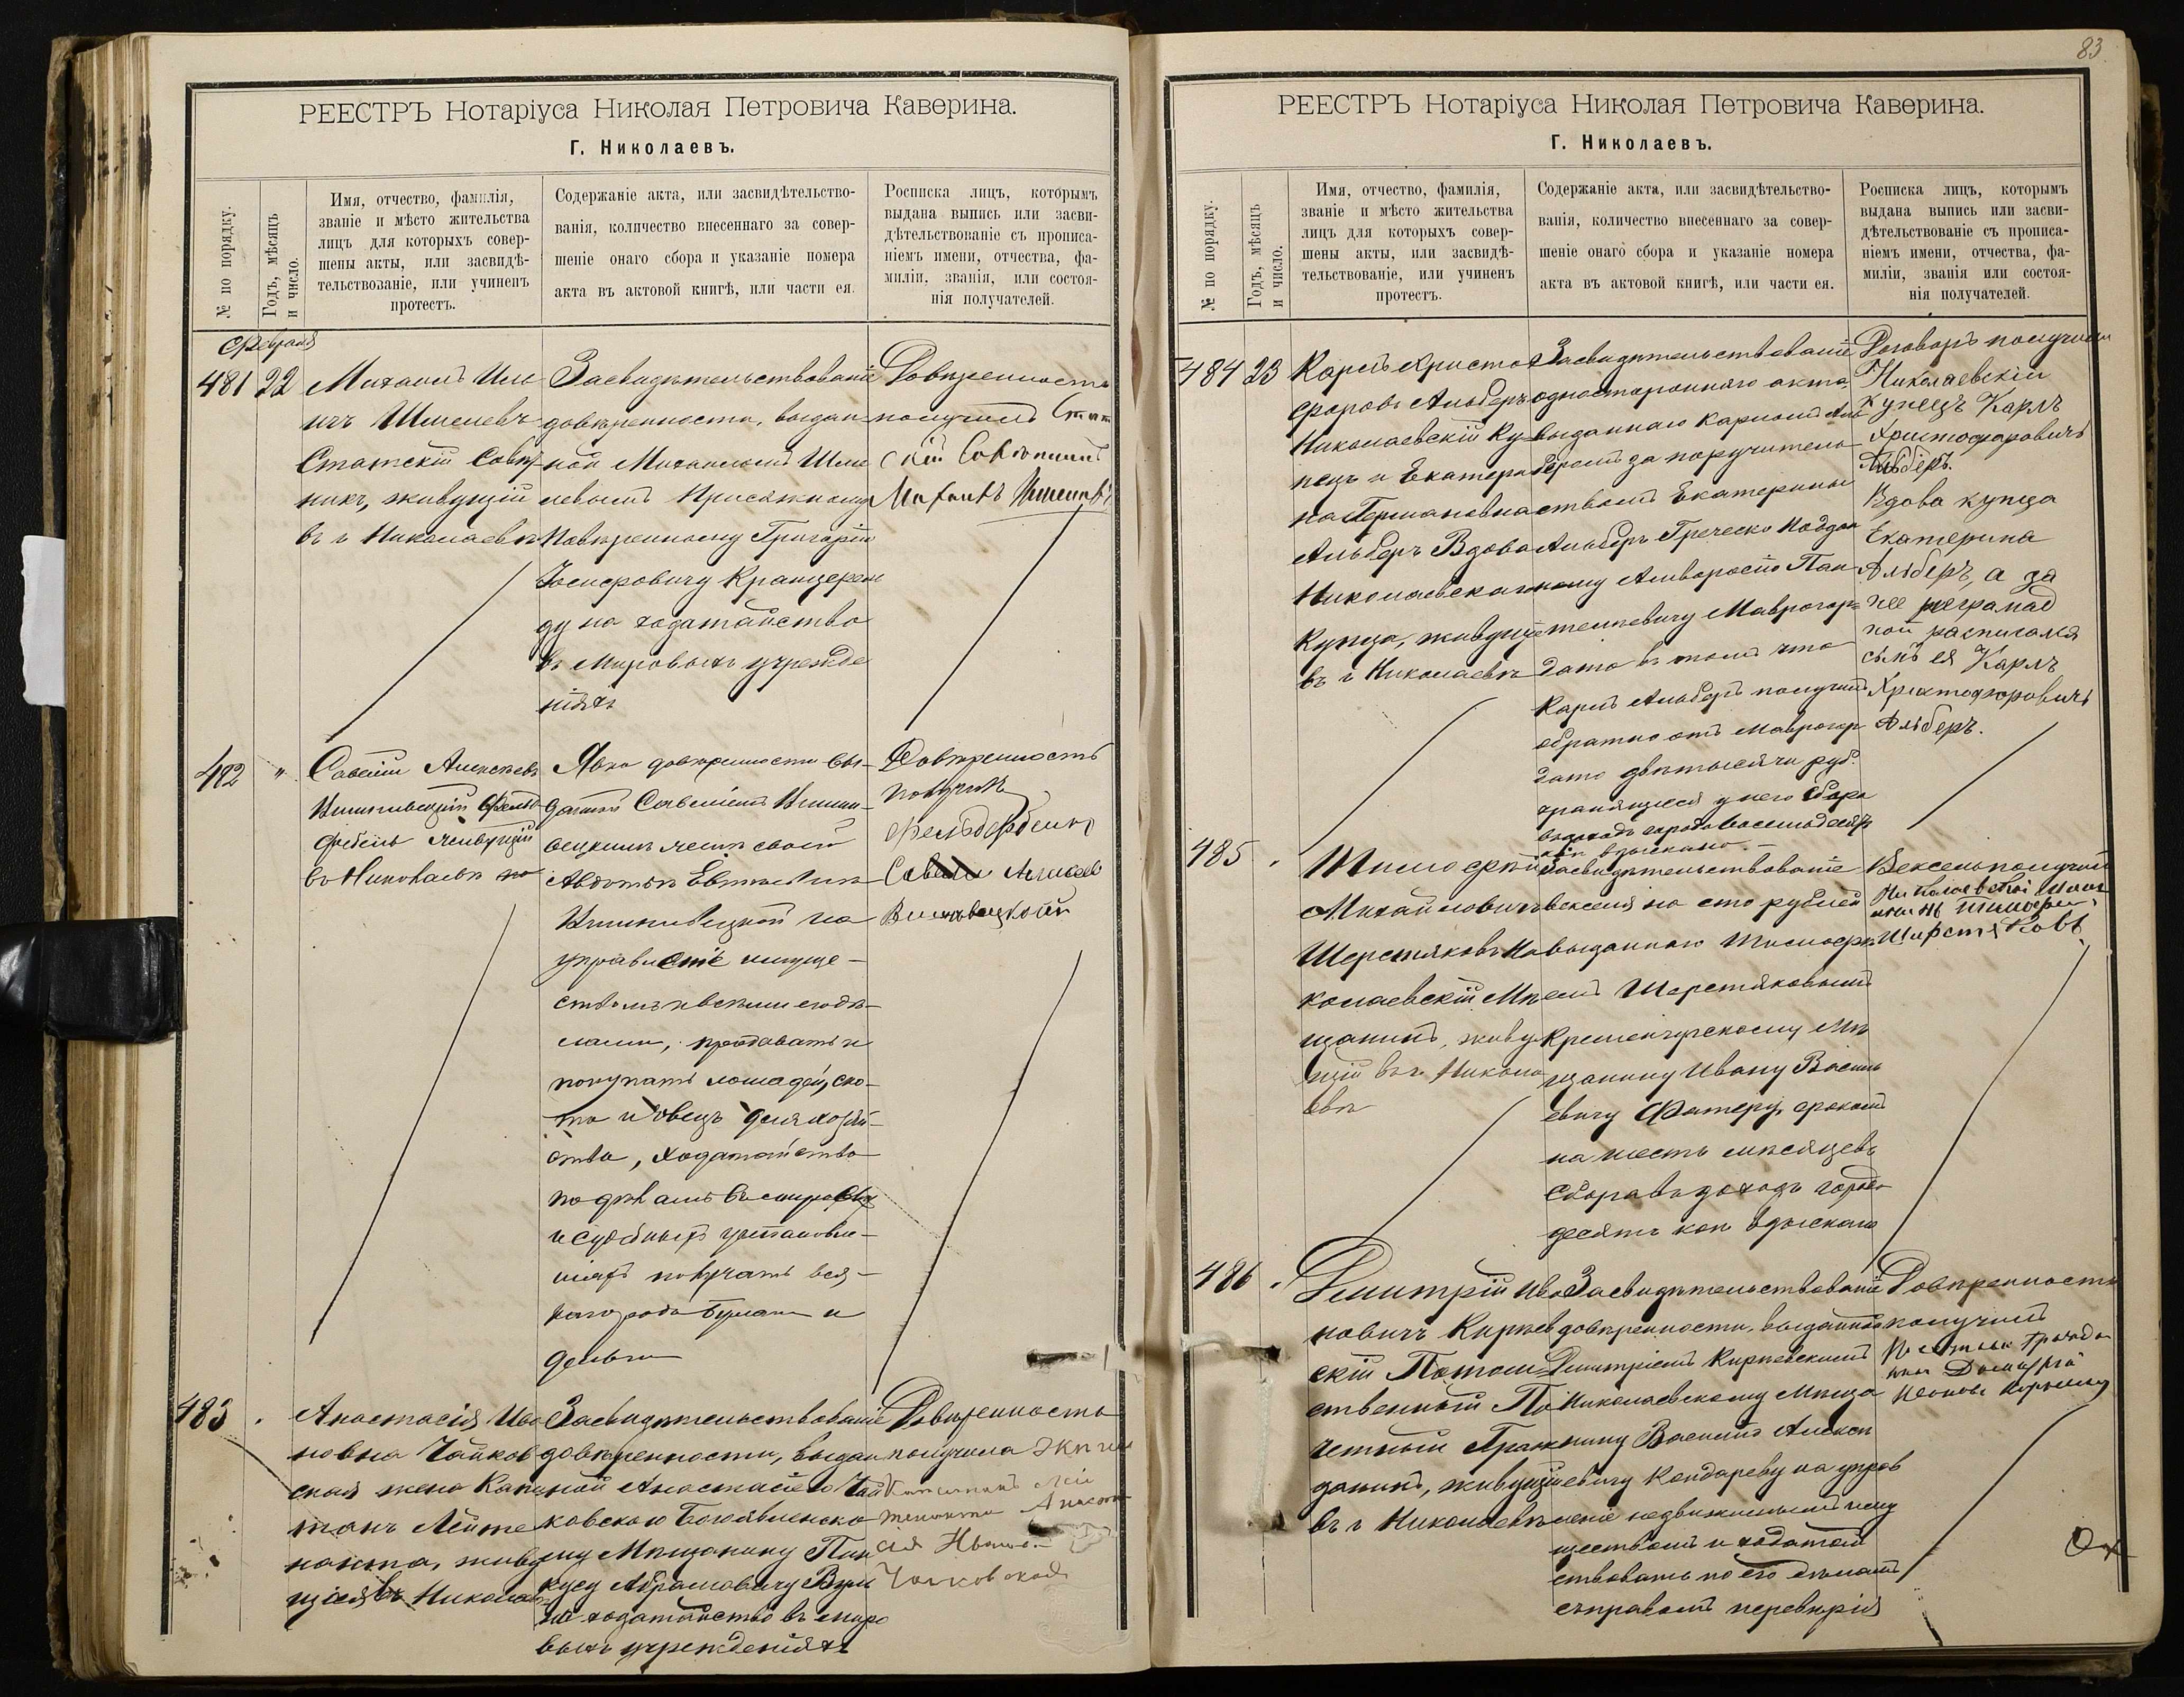 РЕЕСТРЪ Нотаріуса Николая Петровича Каверина.
Г. Николаевъ.
№ по порядку.
Годъ, мѣсяцъ
и число.
Имя, отчество, фамилія,
званіе и мѣсто жительства
лицъ для которыхъ совер-
шены акты, или засвидѣ-
тельствованіе, или учиненъ
протестъ.
Содержаніе акта, или засвидѣтельство-
ванія, количество внесеннаго за совер-
шеніе онаго сбора и указаніе номера
акта въ актовой книгѣ, или части ея.
Росписка лицъ, которымъ
выдана выпись или засви-
дѣтельствованіе съ прописа-
ніемъ имени, отчества, фа-
миліи, званія, или состоя-
нія получателей.
Февраля
481 22
Михаилъ Иль
ичъ Шмелевъ
Статскій Совѣт
никъ, живущій
въ г Николаевѣ
Засвидѣтельствованіе
довѣренности, выдан
ной Михаиломъ Шме
левымъ Присяжному
Повѣренному Григорію
Іосифовичу
ду на ходатайство
въ Мировыхъ учрежде
ніяхъ
Довѣренность
получилъ Стат
скій Совѣтникъ
Михаилъ Шмелевъ
482 "
Савелій Алексѣевъ
Фельд
фебель живущій
въ Николаевѣ
Явка довѣренности вы-
данной Савеліемъ
женѣ своей
Авдотьѣ
на
управленіе имуще-
ствомъ и всѣми его дѣ-
лами, продавать и
покупать лошадей, ско-
та и овецъ для хозяй-
ства, ходатайство
по дѣламъ въ мировыхъ
и судебныхъ установле-
ніяхъ получать вся-
каго рода бумаги и
деньги
Довѣренность
получилъ
фельдфебель
Савелій Алексѣевъ
483 "
Анастасія Ива
новна Чайков
ская жена Капи
танъ Лейте
нанта, живу
щая въ Николаевѣ
Засвидѣтельствованіе
довѣренности, выдан
ной Анастасіею Чай
ковскою Богоявленско
му Мѣщанину Пин
кусу Абрамовичу
на ходатайство въ миро
выхъ учрежденіяхъ
Довѣренность
получила жена
Капитанъ Лей
тенанта Анаста
сія Иванов.
Чайковская
83
РЕЕСТРЪ Нотаріуса Николая Петровича Каверина.
Г. Николаевъ.
№ по порядку.
Годъ, мѣсяцъ
и число.
Имя, отчество, фамилія,
званіе и мѣсто жительства
лицъ для которыхъ совер-
шены акты, или засвидѣ-
тельствованіе, или учиненъ
протестъ.
Содержаніе акта, или засвидѣтельство-
ванія, количество внесеннаго за совер-
шеніе онаго сбора и указаніе номера
акта въ актовой книгѣ, или части ея.
Росписка лицъ, которымъ
выдана выпись или засви-
дѣтельствованіе съ прописа-
ніемъ имени, отчества, фа-
миліи, званія или состоя-
нія получателей.
484 23
Карлъ Христо
форовъ Альберъ
Николаевскій Ку
пецъ и Екатери
на Германовна
Альберъ Вдова
Николаевскаго
Купца, живущіе
въ г Николаевѣ
Засвидѣтельствованіе
односторонняго акта,
выданнаго Карломъ Аль
беромъ за поручитель
ствомъ Екатерины
Альберъ Греческо поддан
ному Амвросію Пан
телевичу Маврогор
дато въ томъ что
Карлъ Альберъ получилъ
обратно отъ Маврогор
дато двѣ тысячи руб.
хранящіеся у него Сбора
въ доходъ города восемьдесятъ
коп взыскано.
Договоръ получили
Николаевскій
Купецъ Карлъ
Христофоровичъ
Альберъ.
Вдова купца
Екатерина
Альберъ, а за
нее неграмот
ной расписался
сынъ ея Карлъ
Христофоровичъ
Альберъ.
485 "
Тимофей
Михайловичъ
Шерстяковъ Ни
колаевскій Мѣ
щанинъ, живу
щій въ г. Никола
евѣ
Засвидѣтельствованіе
векселя на сто рублей
выданнаго Тимофе
емъ Шерстяковымъ
Кременчугскому Мѣ
щанину Ивану Василь
евичу Фатеру, срокомъ
на шесть мѣсяцевъ
Сбора въ доходъ города
десять коп взыскано
Вексель получилъ
Николаевскій мѣщ
анинъ Тимофей
Шерстяковъ
486 "
Дмитрій Ива
новичъ Киріев
скій Потом
ственный По
четный Граж
данинъ, живущій
въ г Николаевѣ
Засвидѣтельствованіе
довѣренности, выданной
Дмитріемъ Киріевскимъ
Николаевскому Мѣща
нину Василію Алексѣ
евичу Кондареву на управ
леніе недвижимымъ иму
ществомъ и ходатай
ствовать по его дѣламъ
съ правомъ перевѣрія
Довѣренность
получилъ